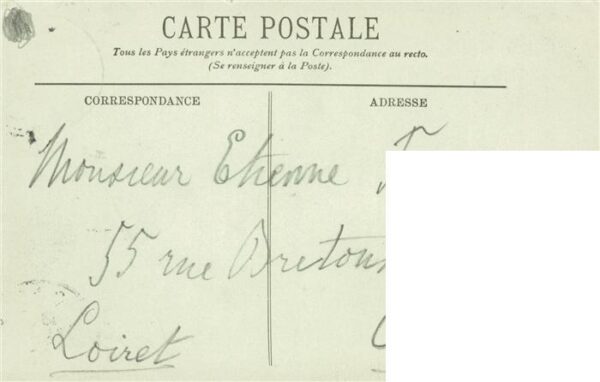 CARTE POSTALE
Tous les Pays étrangers n'acceptent pas la Correspondance au recto.
(Se renseigner à la Poste).
CORRESPONDANCE
ADRESSE
Monsieur Etienne
55 rue
Loiret